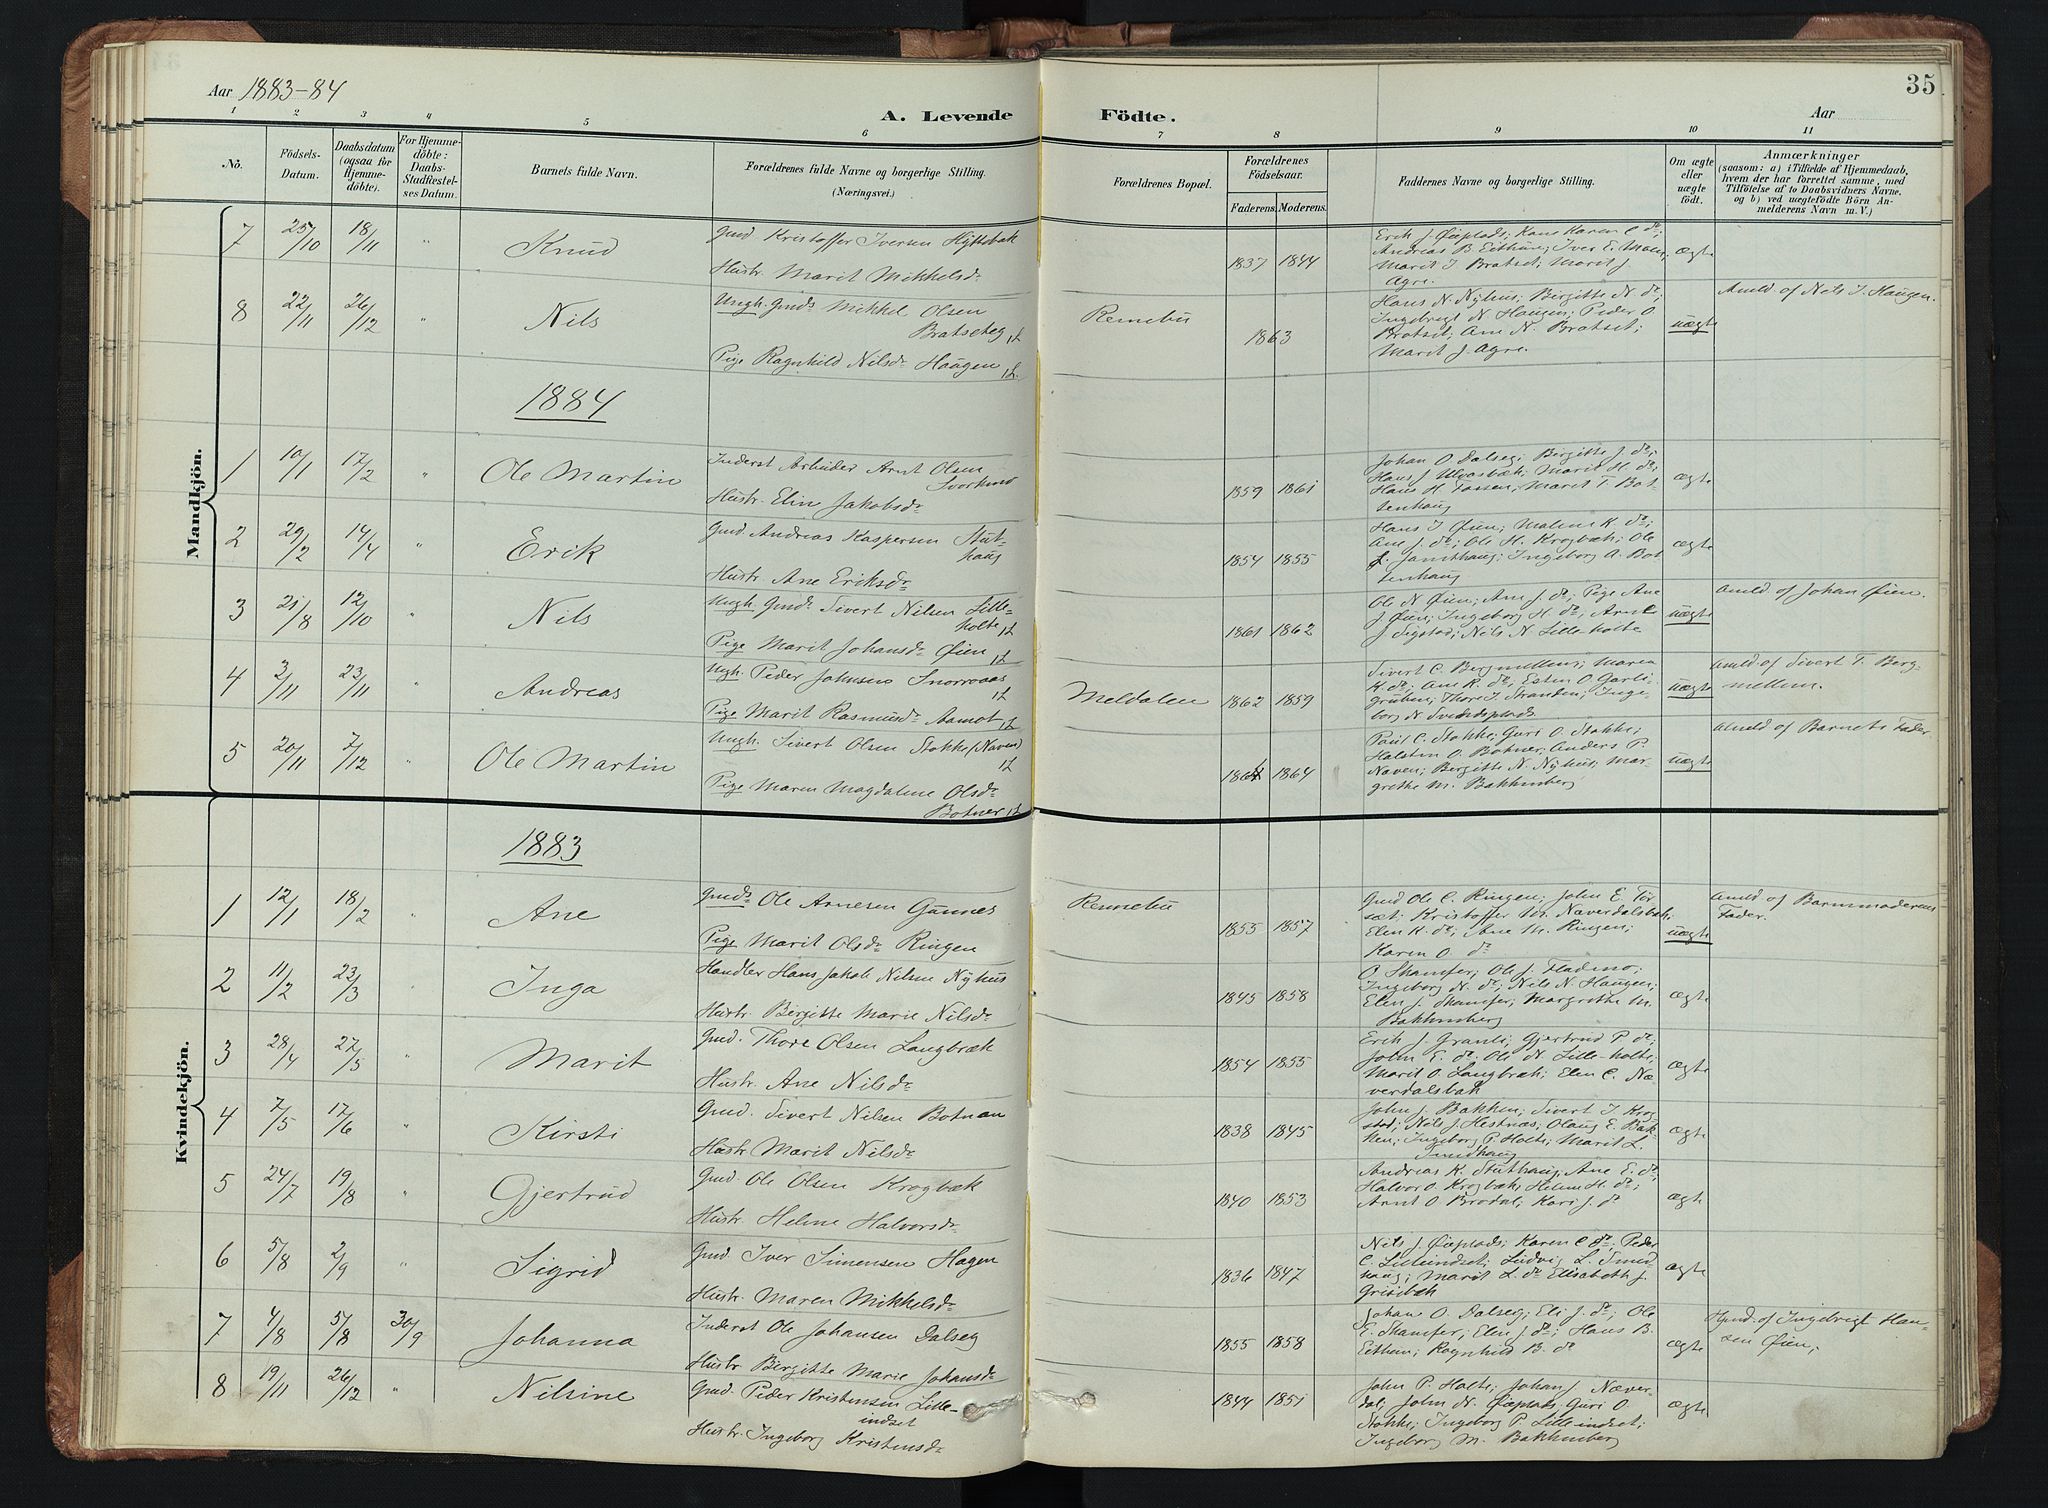 Aar 1883-84
A. Levende Födte.
Aar
35
1 2 3 4 5 6 7 8 9 10 11
No. Födsels-Datum. Daabsdatum (ogsaa for Hjemmedöbte). For Hjemmedöbte: Daabs-Stadfæstelses Datum. Barnets fulde Navn. Forældrenes fulde Navne og borgerlige Stilling. (Næringsvei.) Forældrenes Bopæl. Forældrenes Födselsaar. Faderens. Moderens. Faddernes Navne og borgerlige Stilling. Om ægte eller uægte födt. Anmærkninger (saasom: a) i Tilfælde af Hjemmedaab, hvem der har forrettet samme, med Tilföielse af to Daabsvidners Navne, og b) ved uægtefödte Börn Anmelderens Navn m. V.)
Mandkjön.
7 25/10 18/11 " Knud
Gmd. Kristoffer Iversen Hyttebak
Hustr. Marit Mikkelsdr
1837 1844
Erik J. Øieplads; Kone Karen C. do;
Andreas B. Eithun; Iver E. Moen;
Marit I. Bratset; Marit J.
Agre.
ægte
8 22/11 26/12 " Nils
Ungk. Gmds Mikkel Olsen
Bratseteg, 1L
Pige Ragnhild Nilsdr Haugen, 1L.
Rennebu
1863
Hans N. Nyhus; Bergitte N. do;
Ingebrigt N. Haugen; Peder O.
Bratset; Ane N. Bratset;
Marit J. Agre.
uægte
Anld. af Nels I. Haugen.
1884
1 10/1 17/2 " Ole Martin
Inderst Arbeider Arnt Olsen
Svorkmo
Hustr. Elin Jakobsdr
1859 1861
Johan O. Dalseg; Bergitte J. do;
Hans J. Ulvasbæk; Marit H. do;
Hans H. Fossen; Marit T. Bot-
tenhaug
ægte
2 29/2 14/4 " Erik
Gmd. Andreas Kaspersen Stut-
haug
Hustr. Ane Eriksdr
1854 1855
Hans I. Øien; Malene K. do;
Ane J. do; Ole H. Krogbæk; Ole
L. Jamthaug; Ingeborg A. Bot-
tenhaug
ægte
3 21/8 12/10 " Nils
Ungk. Gmds. Sivert Nilsen Lille-
holte, 1L
Pige Marit Johansdr Øien, 1L
1861 1862
Ole N. Øien; Ane J. do; Pige Ane
J. Øien; Ingeborg H. do; Arnt
J. Sigstad; Nils N. Lilleholte
uægte
Anld. af Johan Øien.
4 2/11 23/11 Andreas
Ungk. Peder Johnsen Snorroaas
1L
Pige Marit Rasmusdr Aamot, 1L
Meldalen
1862 1859
Sivert C. Bergmellem; Maren
K. do; Ane R. do; Esten O. Garli-
gruben; Thore I. Stranden; Inge-
borg N. Svendsplads
uægte
Anld af Sivert T. Berg-
mellem.
5 20/11 7/12 " Ole Martin
Ungk. Sivert Olsen Stokke (Naven)
1L
Pige Maren Magdalene Olsdr
Botner, 1L
1864 1864
Paul C. Stokke; Guri O. Stokke;
Halsten O. Botner; Anders P.
Naven; Bergitte N. Nyhus; Mar-
grethe M. Bakkenberg
uægte
Anld af Barnets Fader
Kvindekjön.
1883
1 12/1 18/2 Ane
Gmds. Ole Arnesen Gunnes
Pige Marit Olsdr Ringen
Rennebu
1855 1857
Gmd Ole C. Ringen; John E. Tør-
sæt; Kristoffer M. Næverdalsbak;
Elen K. do; Ane M. Ringen;
Karen O. do
uægte
Anld af Barnmoderens
Fader.
2 11/2 23/3 Inga
Handler Hans Jakob Nilsen Nyhus
Hustr. Bergitte Marie Nilsdr
1845 1858
O. Skamfer; Ole J. Fladmo;
Ingeborg N. do; Nils N. Haugen;
Elen J. Skamfer; Margrethe M.
Bakkenberg
ægte
3 28/4 27/5 " Marit
Gmd. Thore Olsen Langbæk
Hustr. Ane Nilsdr
1854 1855
Erik J. Granli; Gjertrud P. do;
John E. do; Ole N. Lilleholte;
Marit O. Langbæk; Elen C. Næ-
verdalsbak
ægte
4 7/5 17/6 " Kirsti
Gmd. Sivert Nilsen Botnan
Hustr Marit Nilsdr
1838 1845
John J. Bakken; Sivert I. Krog-
stad; Nils J. Hestnæs; Olaug E. Bak-
ken; Ingeborg P. Holte; Marit L.
Smedhaug
ægte
5 24/7 19/8 " Gjertrud
Gmd. Ole Olsen Krogbæk
Hustr. Helene Halvorsdr
1840 1853
Andreas K. Stuthaug; Ane E. do;
Halvor O. Krogbæk; Helene H. do;
Arnt O. Brodal; Kari J. do
ægte
6 5/8 2/9 " Sigrid
Gmd. Iver Simensen Hagen
Hustr. Maren Mikkelsdr
1836 1847
Nils J. Øieplads; Karen C. do; Peder
C. Lilleindset; Ludvig L. Smed-
haug; Marit L. do Elisabeth J.
Grisibæk
ægte
7 4/8 5/8 30/9 Johanna
Inderst Ole Johansen Dalseg
Hustr Bergitte Marie Johansdr
1855 1858
Johan O. Dalseg; Eli J. do; Ole
E. Skamfer; Elen J. do; Hans B.
Eithun; Ragnhild B. do
ægte
Hjmd. af Ingebrigt Han-
sen Øien,
8 19/11 26/12 " Nilsine
Gmd. Peder Kristensen Lille-
indset
Hustr. Ingeborg Kristensdr
1844 1851
John P. Holte; Johan J. Næver-
dal; John N. Øieplads; Guri O.
Stokke; Ingeborg P. Lilleindset;
Ingeborg M. Bakkenberg
ægte